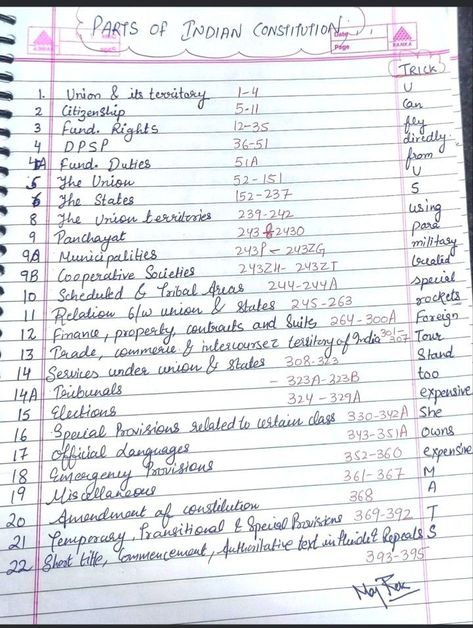 PARTS OF INDIAN CONSTITUTION
TRICK
1. Union & its territory 1-4 U
2 Citizenship 5-11 can
3 Fund. Rights 12-35 fly
4 DPSP 36-51 directly
4A Fund. Duties 51A from
5 The Union 52-151 U
6 The States 152-237 S
8 The Union territories 239-242 using
9 Panchayat 243 - 243O Para
9A Municipalities 243P - 243ZG military
9B Cooperative Societies 243ZH - 243ZT located
10 Scheduled & Tribal Areas 244-244A special
11 Relation b/w union & states 245-263 rockets
12 Finance, property contracts and Suits 264-300A Foreign
13 Trade, commerce & intercourse territory of India 301-307 Tour
14 Services under union & states 308-323 Stand
14A Tribunals - 323A-323B too
15 Elections 324-329A expensive
16 Special Provisions related to certain class 330-342A She
17 Official Languages 343-351A Owns
18 Emergency Provisions 352-360 expensive
19 Miscellaneous 361-367 M
20 Amendment of constitution 368 A
21 Temporary, Transitional & Special Provisions 369-392 T
22 Short title, Commencement, Authoritative text in Hindi & Repeals S
393-395